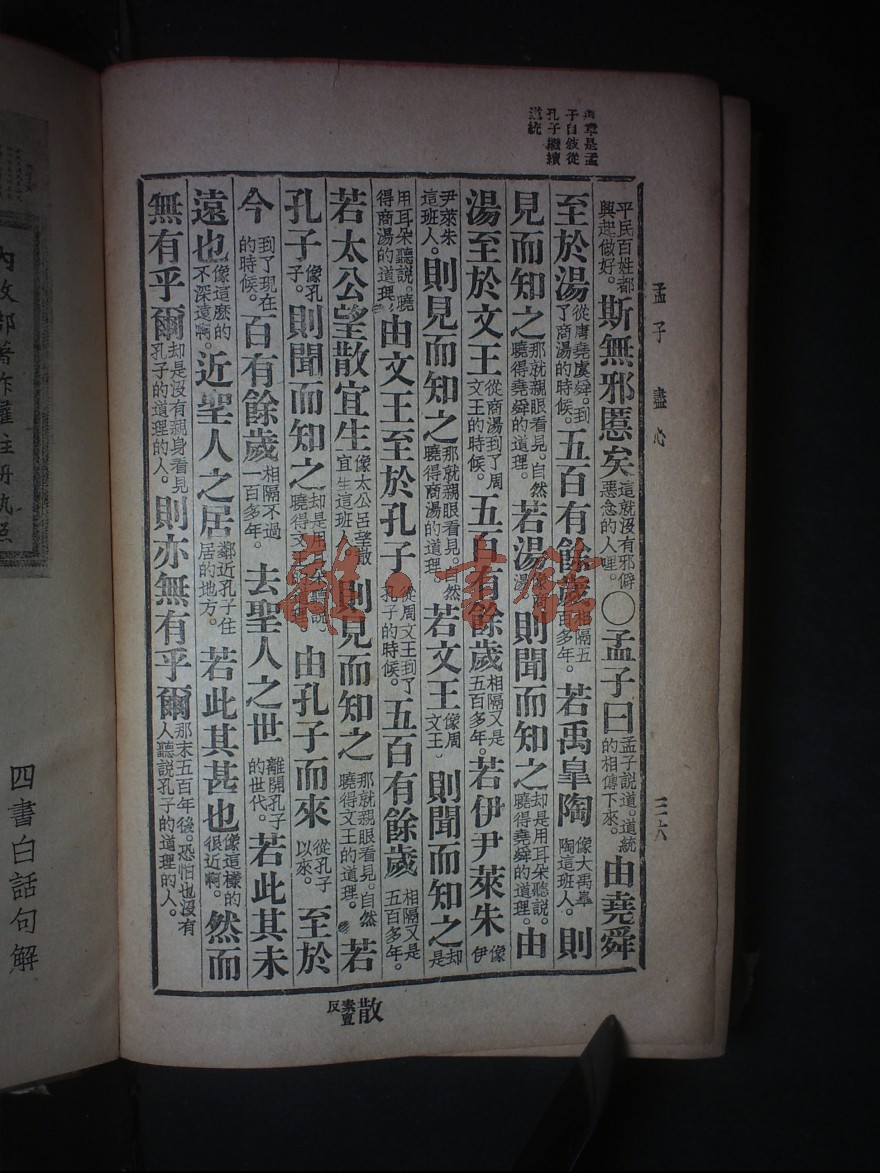 此章是孟
子自敘從
孔子繼續
道統
孟子 盡心 三六
平民百姓都興起做好。斯無邪慝矣這就沒有邪僻惡念的人哩。○孟子曰孟子說道。道統的相傳下來。由堯舜
至於湯從唐堯虞舜。到了商湯的時候。五百有餘歲相隔五百多年。若禹皐陶像大禹皐陶這班人。則
見而知之那就親眼看見。自然曉得堯舜的道理。若湯像商湯則聞而知之却是用耳朵聽說。曉得堯舜的道理。由
湯至於文王從商湯到了周文王的時候。五百有餘歲相隔又是五百多年。若伊尹萊朱像伊
尹萊朱這班人。則見而知之那就親眼看見。自然曉得商湯的道理。若文王像周文王則聞而知之却是
用耳朵聽說。曉得商湯的道理。由文王至於孔子從周文王到了孔子的時候。五百有餘歲相隔又是五百多年。
若太公望散宜生像太公呂望散宜生這班人則見而知之那就親眼看見。自然曉得文王的道理。若
孔子像孔子。則聞而知之却是用耳朵聽說曉得文王的道理。由孔子而來從孔子以來。至於
今到了現在的時候。百有餘歲相隔不過一百多年。去聖人之世離開孔子的世代。若此其未
遠也像這麼的不深遠啊。近聖人之居鄰近孔子住居的地方。若此其甚也像這樣的很近啊。然而
無有乎爾却是沒有親身看見孔子的道理的人。則亦無有乎爾那末五百年後。恐怕也沒有人聽說孔子的道理的人。
散素亶反
四書白話句解
內政部著作權註册執照
雜·書館